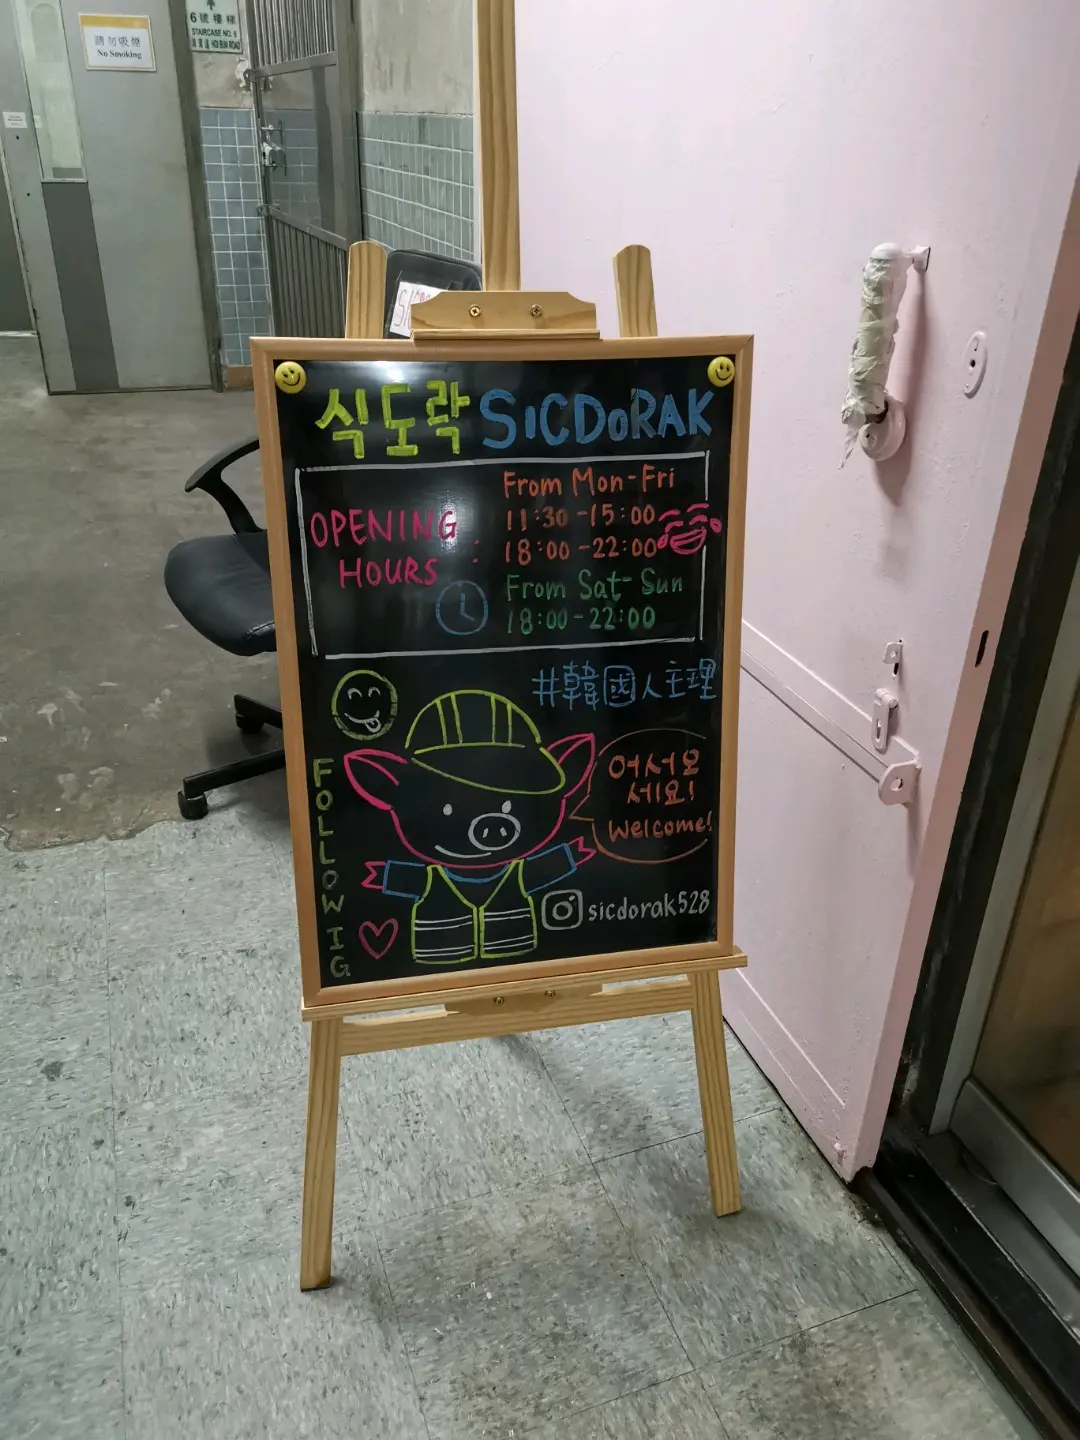 請勿吸煙
No Smoking
6號樓梯
STAIRCASE NO. 6
HOI BUN ROAD
식도락 SICDORAK
OPENING HOURS :
From Mon-Fri
11:30-15:00
18:00-22:00
From Sat-Sun
18:00-22:00
#韓國人主理
어서오
세요!
Welcome!
FOLLOW IG
sicdorak528